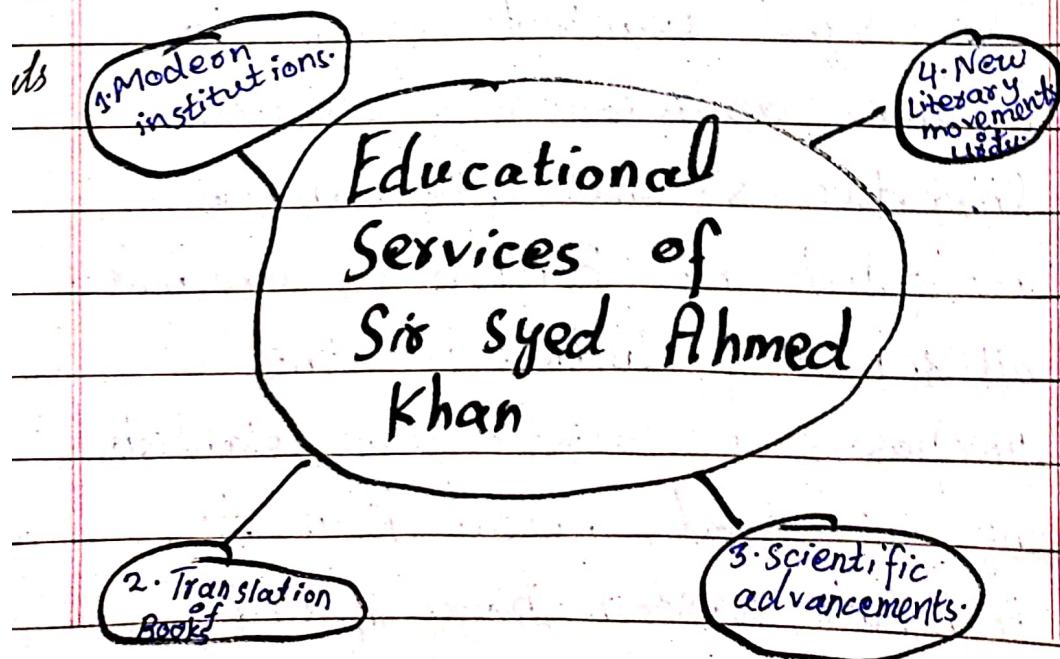 ts
1. Modern
institutions.
4. New
Literary
movements
Urdu.
Educational
Services of
Sir Syed Ahmed
Khan
2. Translation
of
Books
3. Scientific
advancements.